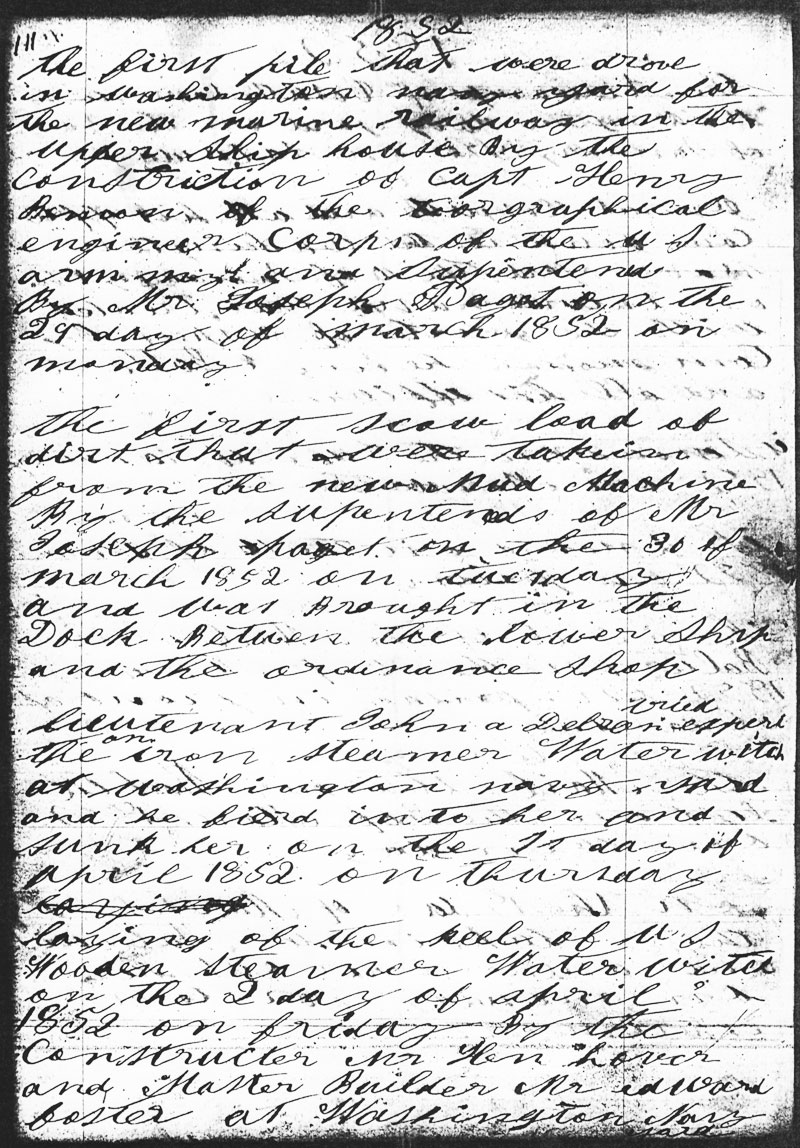 1852
111
the first pile that were drove
in washington navy yard for
the new marine railway in the
upper ship house By the
Constriction of Capt Henry
Benoon of the torgraphical
engineer Corps of the U S
arm and Supentend
By Mr Joseph Paget on the
29 day of march 1852 on
monday
the first scow load of
dirt that were takin
from the new Mud Machine
By the supentends of Mr
Joseph paget on the 30 of
march 1852 on tuesday
and was Brought in the
Dock Betwen the lower Ship
and the ordinance Shop
tried
lieutenant John a experi
on
the iron steamer Water witch
at washington navy yard
and he fierd into her and
sunk her on the 1st day of
april 1852 on thursday
laying
laying of the keel of U S
Wooden steamer Water witch
on the 2 day of april
1852 on friday By the
Constructer Mr Hen hover
and Master Builder Mr edward
foster at Washington Navy
yard